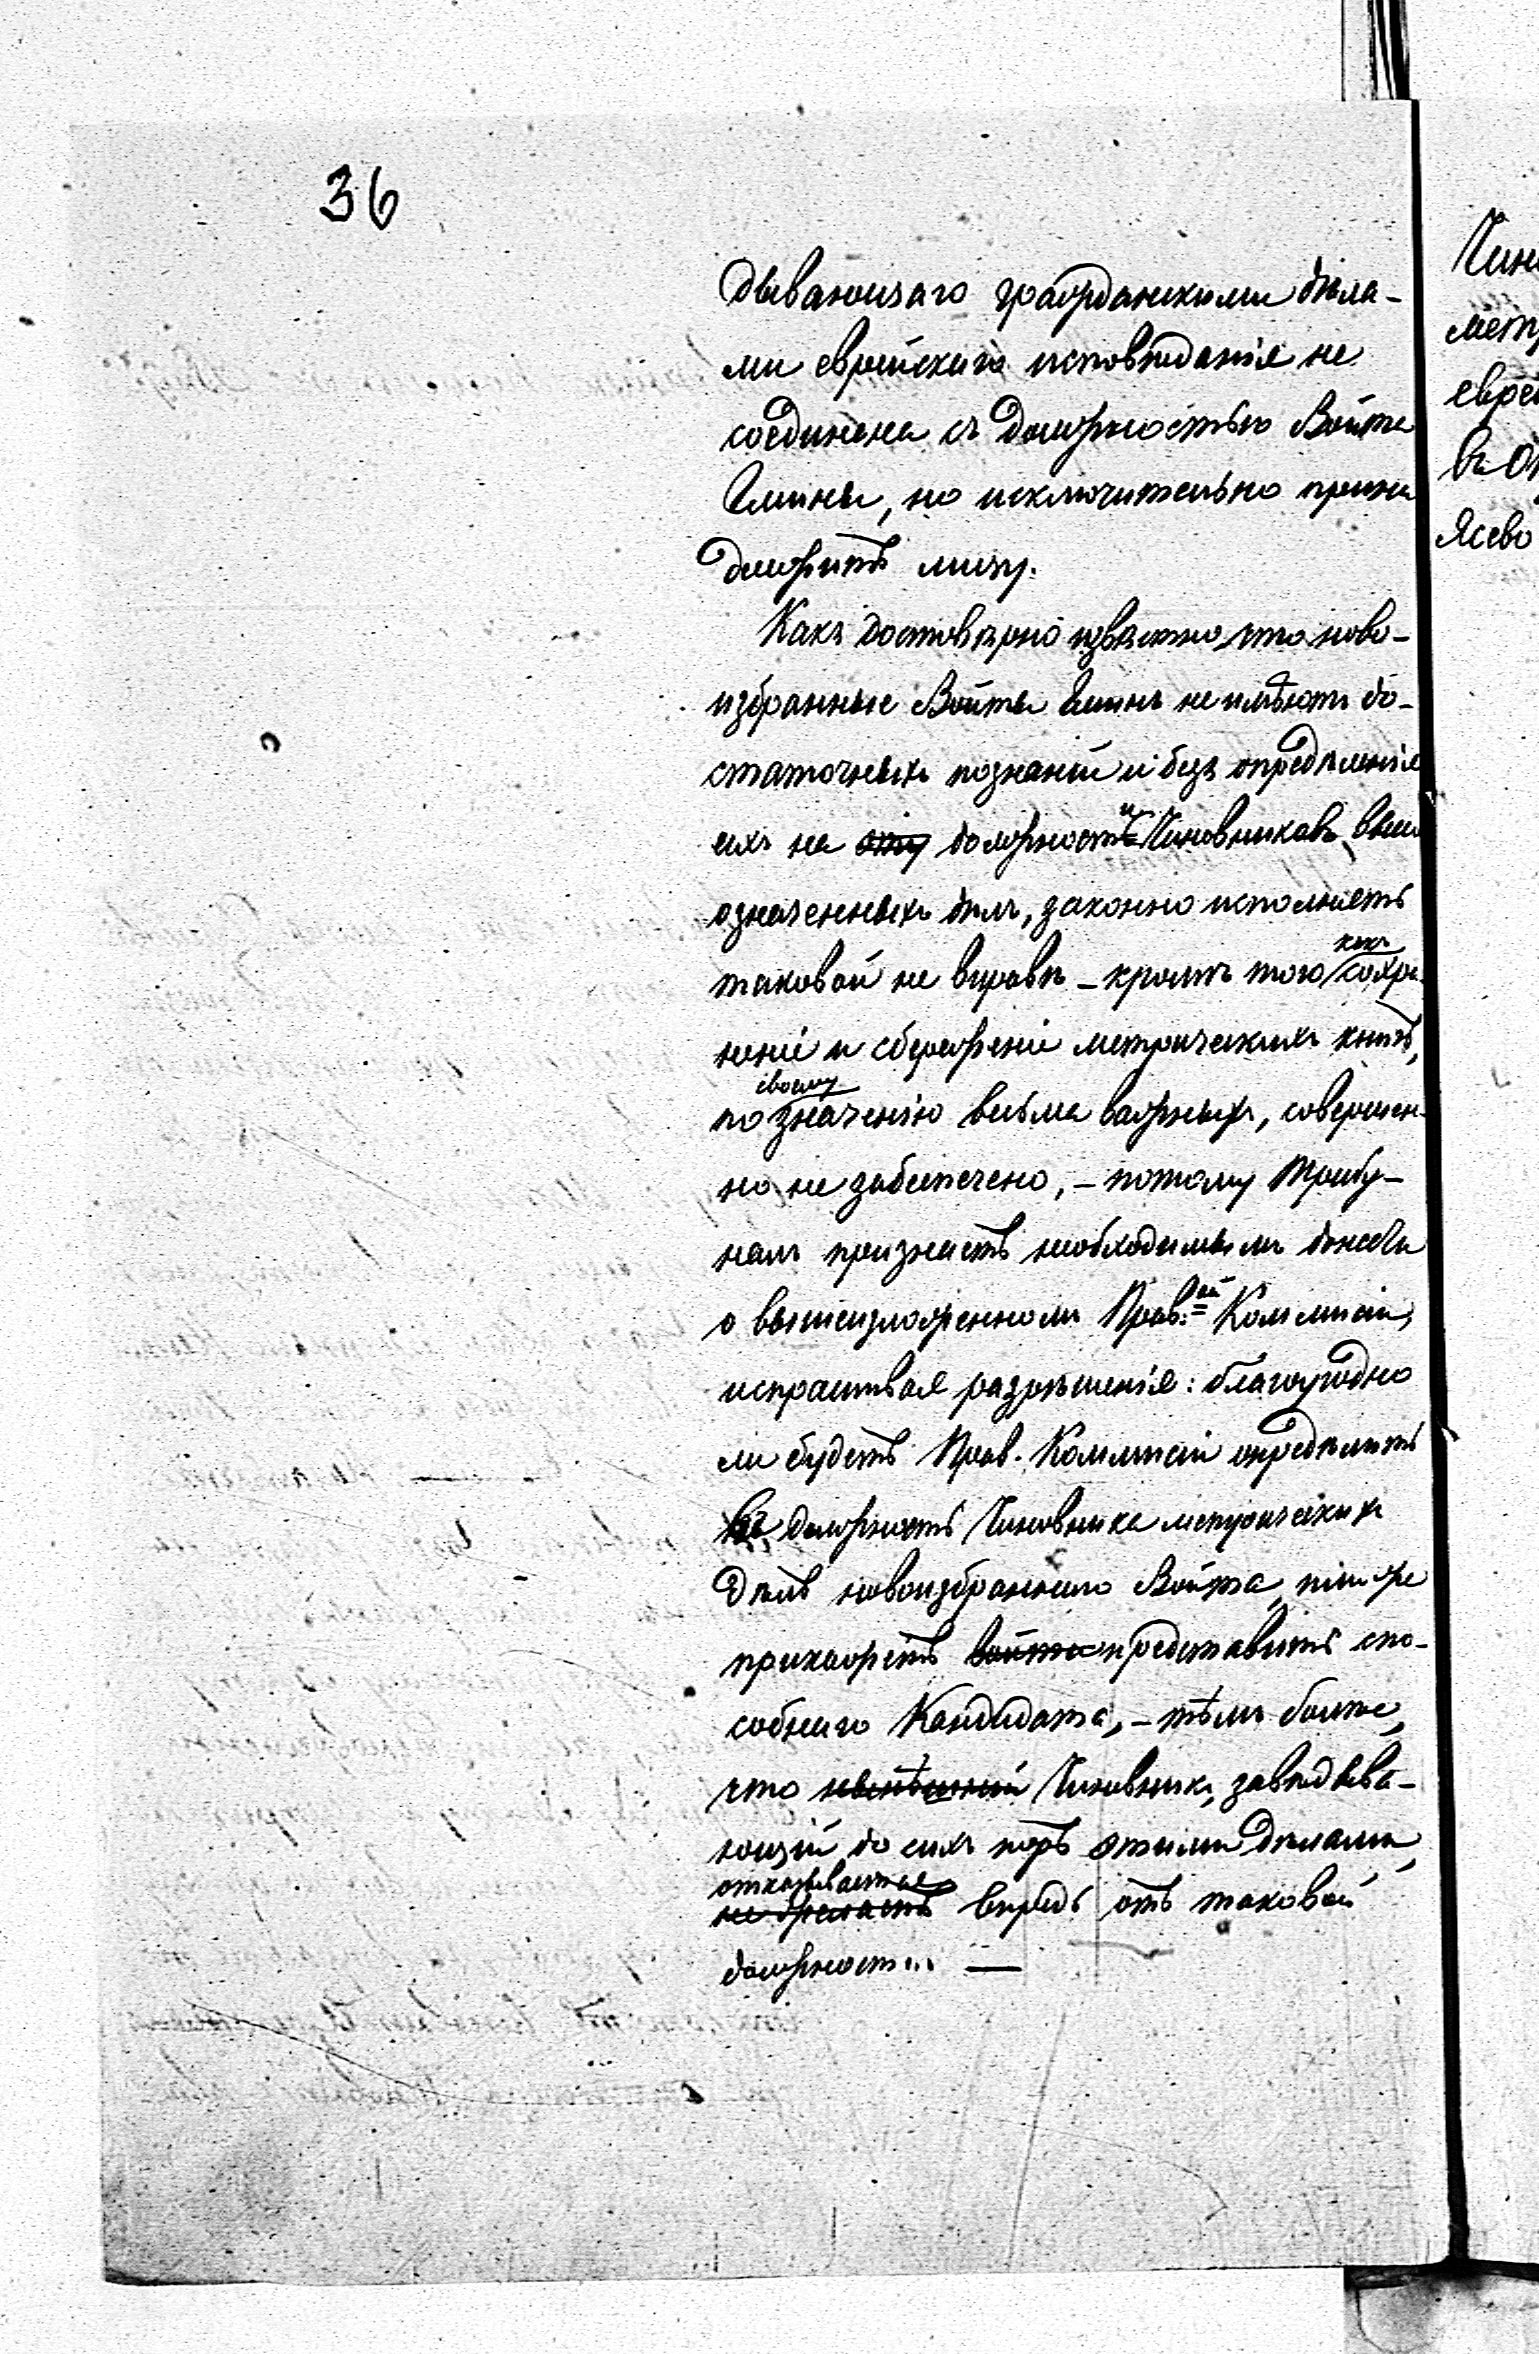 36
дывающаго гражданскими дѣла-
ми еврейскаго исповѣданія не
соединена съ должностью Войта
Гмины, но исключительно прина
длежитъ лицу.
Какъ достовѣрно извѣстно что ново-
избранные Войты Гминъ не имѣютъ до-
статочныхъ познаній и безъ опредѣленія
ихъ на эту должности Чиновниковъ выше
означенныхъ дѣлъ, законно исполнять
таковой не вправѣ - кромѣ того какъ сохра
неніе и сбереженіе метрическихъ книгъ,
по своему значенію весьма важныхъ, совершен-
но не забезпечено, - потому Трибу-
налъ признаетъ необходимымъ донести
о вышеизложенномъ Прав:ой Коммисіи,
испрашивая разрѣшенія: благоугодно
ли будетъ Прав. Коммисіи опредѣлить
въ должность Чиновника метрическихъ
дѣлъ новоизбраннаго Войта, или же
прикажетъ войта представить спо-
собнаго Кандидата, - тѣмъ болѣе,
что нынѣшній Чиновникъ, завѣдыва-
ющій до сихъ поръ этими дѣлами,
отказывается
не желаетъ впредь отъ таковой
должности. —
Чин
метр
еврей
въ
Ясево